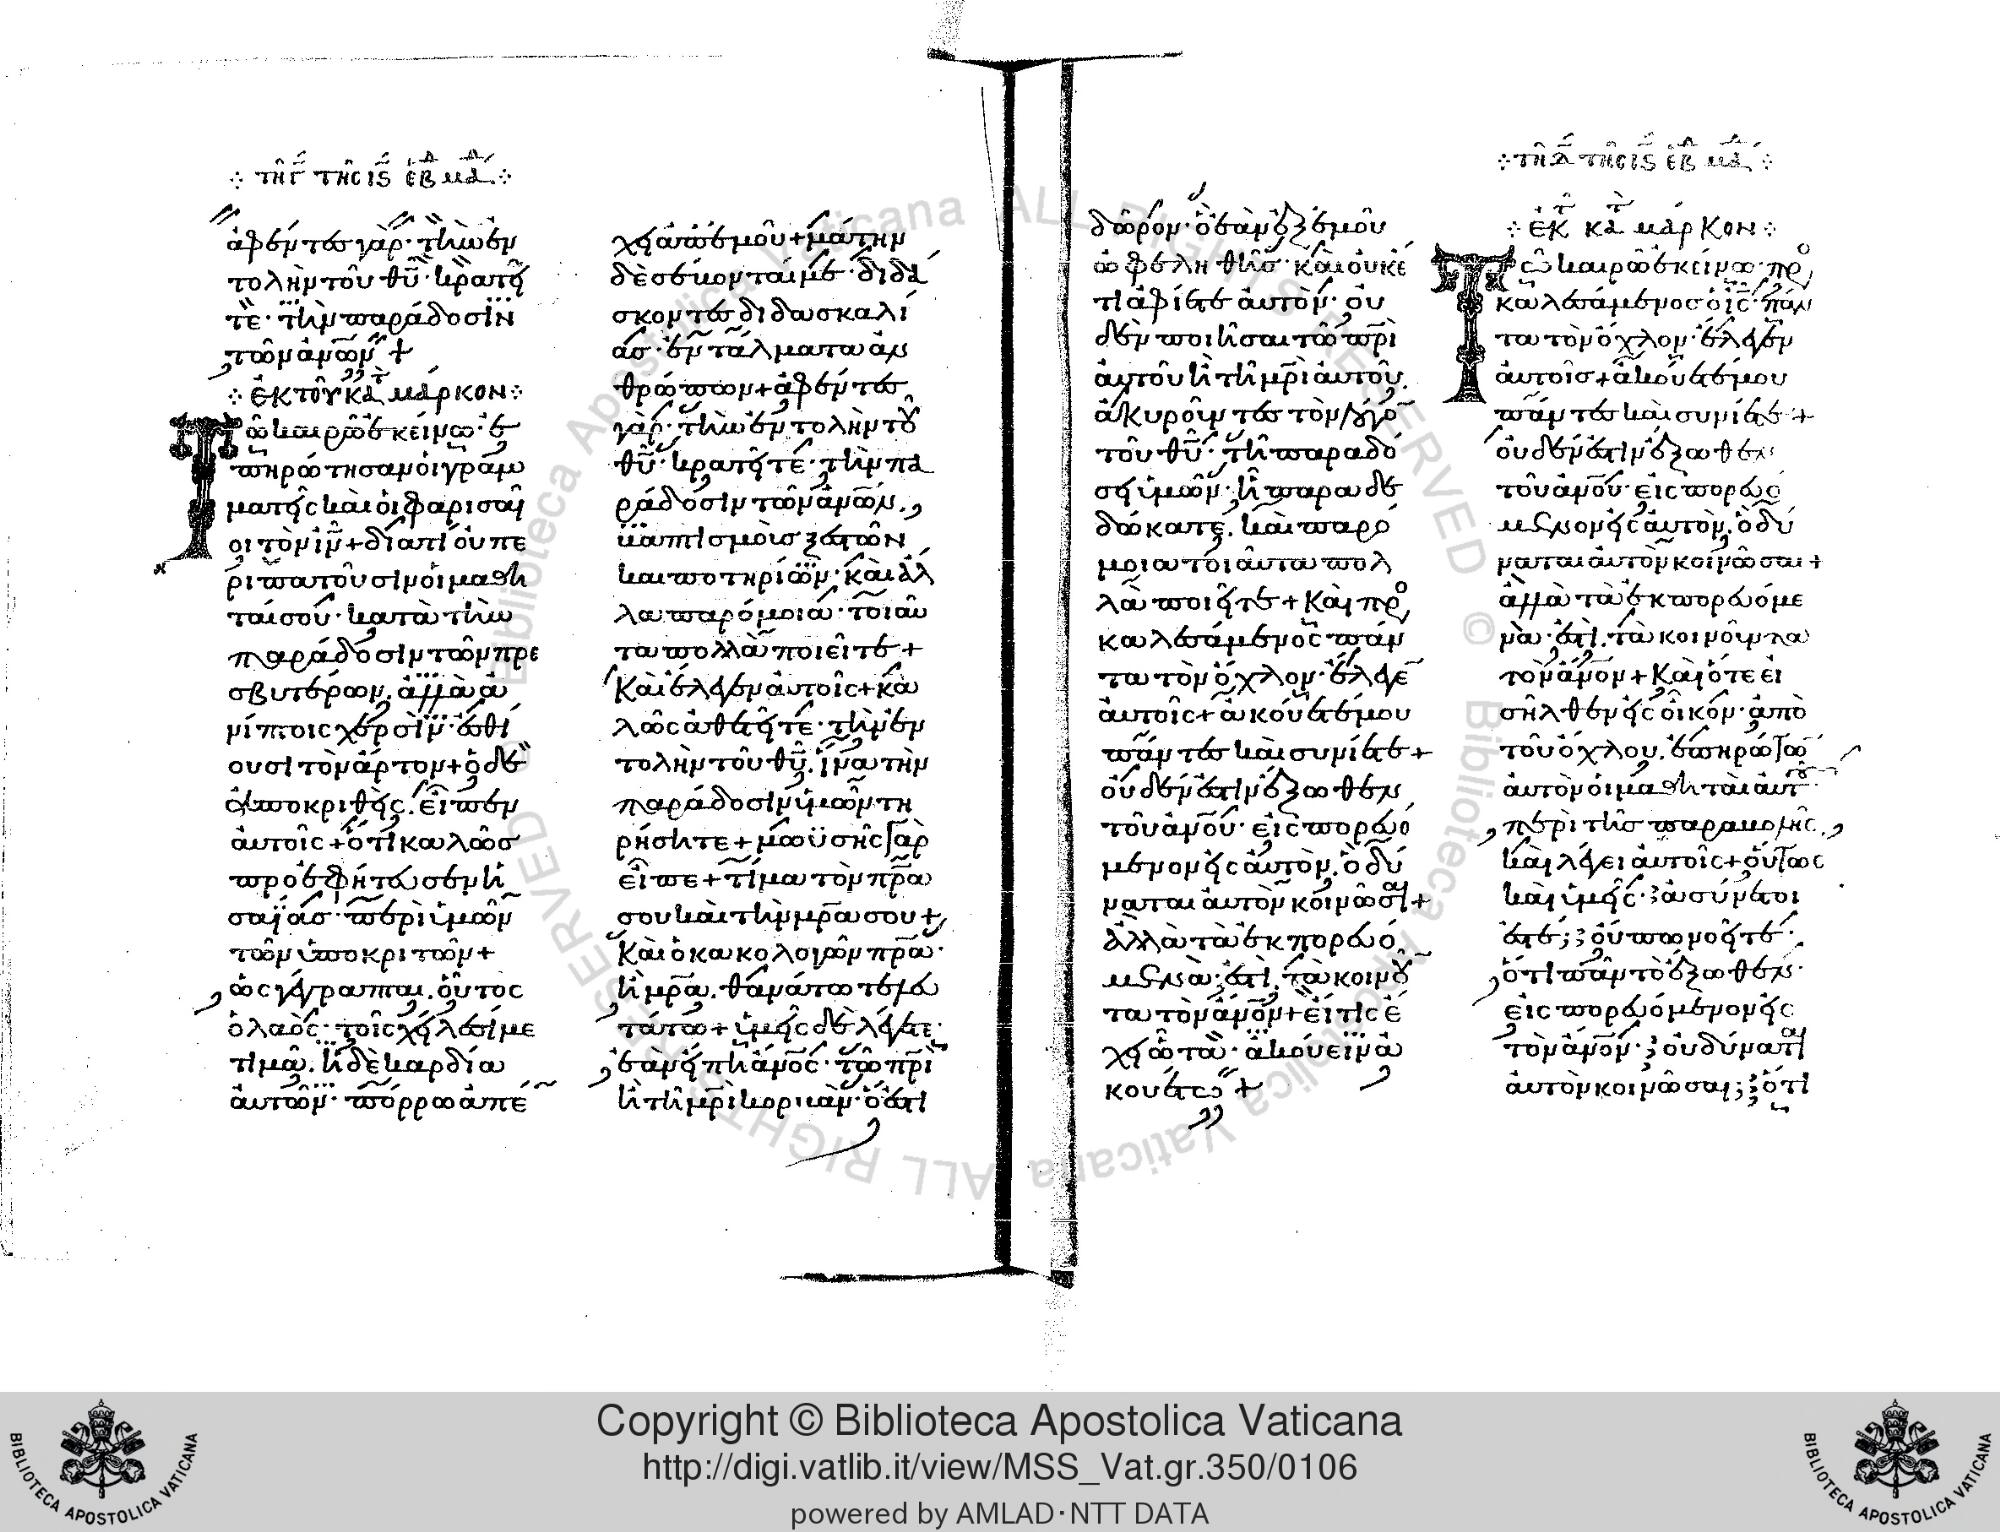 τῆ γ τῆς ις ἑβ μα
ἀφέντες γὰρ· τὴν ἐν
τολὴν τοῦ θυ· κρατεῖ
τε· τὴν παράδοσιν
τῶν ἀνων +
ἐκ τοῦ κατ μάρκον
Τῶ καιρῶ ἐκείνω· ἐ
πηρώτησαν οἱ γραμ
ματεῖς καὶ οἱ φαρισαῖ
οι τὸν ιν + διατί οὐ πε
ριπατοῦσιν οἱ μαθη
ταί σου· κατὰ τὴν
παράδοσιν τῶν πρε
σβυτέρων. ἀλλὰ ἀ
νίπτοις χερσὶν· ἐσθί
ουσι τὸν ἄρτον + ὁ δὲ
ἀποκριθεὶς. εἶπεν
αὐτοῖς + ὅτι καλῶς
προεφήτευσεν ἡ
σαΐας· περὶ ὑμῶν
τῶν ὑποκριτῶν +
ὡς γέγραπται. οὗτος
ὁ λαὸς· τοῖς χείλεσί με
τιμᾶ. ἡ δὲ καρδία
αὐτῶν· πόρρω ἀπέ
χει ἀπ ἐμοῦ + μάτην
δὲ σέβονταί με· διδά
σκοντες διδασκαλί
ας· ἐντάλματα ἀν
θρώπων + ἀφέντες
γὰρ· τὴν ἐντολὴν τοῦ
θυ· κρατεῖτε· τὴν πα
ράδοσιν τῶν ἀνων.
βαπτισμοὺς ξεστῶν
καὶ ποτηρίων· καὶ ἄλ
λα παρόμοια· τοιαῦ
τα πολλὰ ποιεῖτε +
Καὶ ἔλεγεν αὐτοῖς + κα
λῶς ἀθετεῖτε· τὴν ἐν
τολὴν τοῦ θυ. ἵνα τὴν
παράδοσιν ὑμῶν τη
ρήσητε + μωϋσῆς γὰρ
εἶπε + τίμα τὸν πρα
σου καὶ τὴν μρα σου +
Καὶ ὁ κακολογῶν πρα·
ἢ μρα. θανάτω τελευ
τάτω + ὑμεῖς δὲ λέγετε·
ἐὰν εἴπη ἀνος· τῶ πρι
ἢ τῆ μρι κορβᾶν· ὅ ἐστι
δῶρον· ὃ ἐὰν ἐξ ἐμοῦ
ὠφεληθῆς· καὶ οὐκέ
τι ἀφίετε αὐτὸν· οὐ
δὲν ποιῆσαι τῶ πρι
αὐτοῦ ἢ τῆ μρι αὐτοῦ.
ἀκυροῦντες τὸν λόγον
τοῦ θυ· τῆ παραδό
σει ὑμῶν· ἧ παρεδώ
δώκατε. καὶ παρό
μοια τοιαῦτα πολ
λὰ ποιεῖτε + Καὶ προσ
καλεσάμενος πάν
τα τὸν ὄχλον· ἔλεγε
αὐτοῖς + ἀκούετέ μου
πάντες καὶ συνίετε +
οὐδέν ἐστιν ἔξωθεν
τοῦ ἀνου· εἰσπορευό
μενον εἰς αὐτὸν. ὃ δύ
ναται αὐτὸν κοινῶσαι +
Ἀλλὰ τὰ ἐκπορευό
μενα· ἐστὶ. τὰ κοινοῦν
τα τὸν ἀνον + εἴ τις ἔ
χει ὦτα· ἀκούειν ἀ
κουέτω +
τῆ δ τῆς ις ἑβ μα
ἐκ κατ μάρκον
Τῶ καιρῶ ἐκείνω· προσ
καλεσάμενος ὁ ις· πάν
τα τὸν ὄχλον· ἔλεγεν
αὐτοῖς + ἀκούετέ μου
πάντες καὶ συνίετε +
οὐδέν ἐστιν ἔξωθεν
τοῦ ἀνου· εἰσπορευό
μενον εἰς αὐτὸν. ὃ δύ
ναται αὐτὸν κοινῶσαι +
ἀλλὰ τὰ ἐκπορευόμε
να· ἐστὶ. τὰ κοινοῦντα
τὸν ἀνον + Καὶ ὅτε εἰ
σῆλθεν εἰς οἶκον· ἀπὸ
τοῦ ὄχλου. ἐπηρώτων
αὐτὸν οἱ μαθηταὶ αὐτοῦ·
περὶ τῆς παραβολῆς.
Καὶ λέγει αὐτοῖς + οὕτως
καὶ ὑμεῖς· ἀσύνετοί
ἐστέ; οὔπω νοεῖτε·
ὅτι πᾶν τὸ ἔξωθεν·
εἰσπορευόμενον εἰς
τὸν ἀνον· οὐ δύναται
αὐτὸν κοινῶσαι; ὅτι
Copyright © Biblioteca Apostolica Vaticana
http://digi.vatlib.it/view/MSS_Vat.gr.350/0106
powered by AMLAD·NTT DATA
BIBLIOTECA APOSTOLICA VATICANA
BIBLIOTECA APOSTOLICA VATICANA
© Biblioteca Apostolica Vaticana ALL RIGHTS RESERVED © Biblioteca Apostolica Vaticana ALL RIGHTS RESERVED